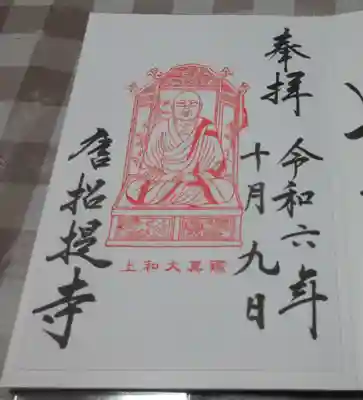 奉拝
令和六年
十月九日
上和大真鑑
唐招提寺